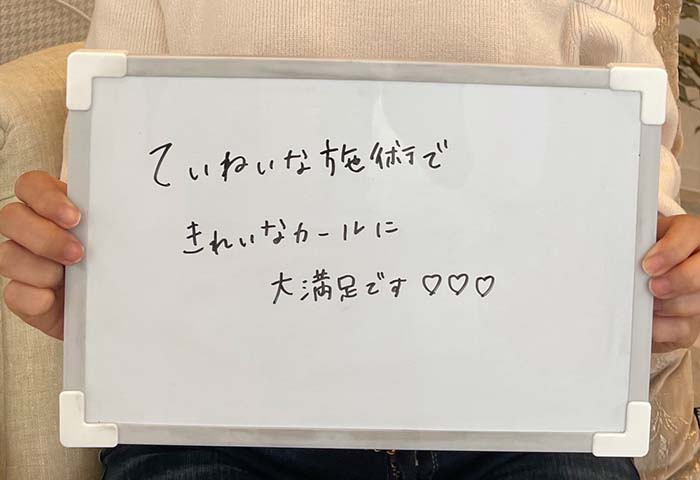 ていねいな施術で
きれいなカールに
大満足です♡♡♡